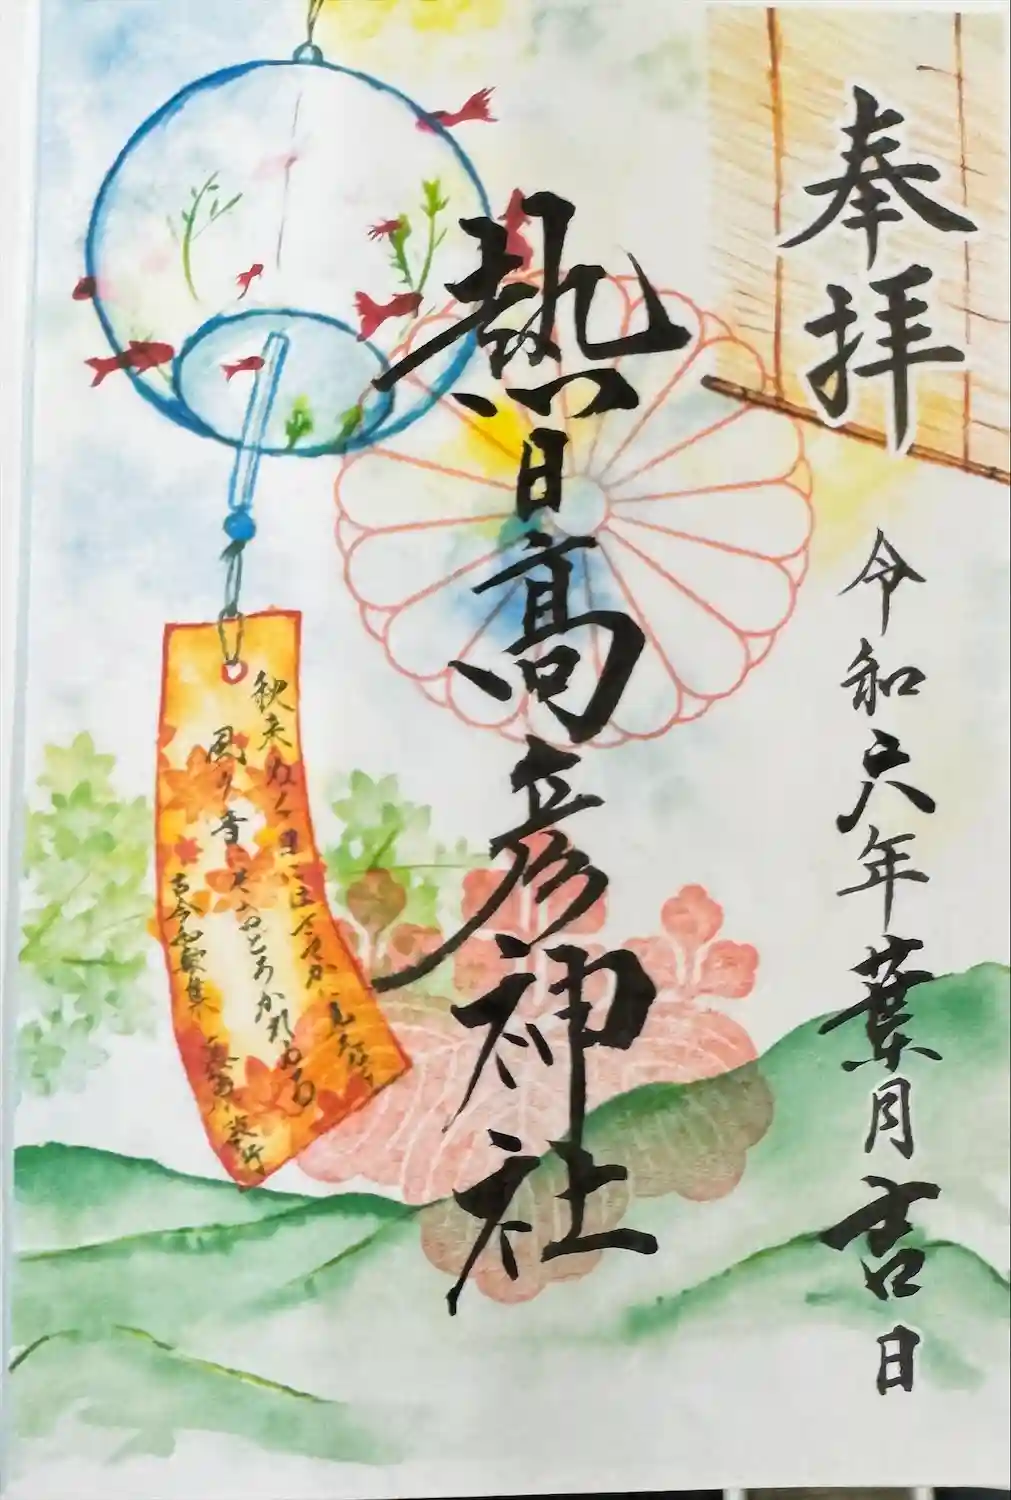 奉拝
令和六年葉月吉日
熱日高彦神社
秋来ぬと目にはさやかに見えねども
風の音にぞおどろかれぬる
古今和歌集 藤原敏行